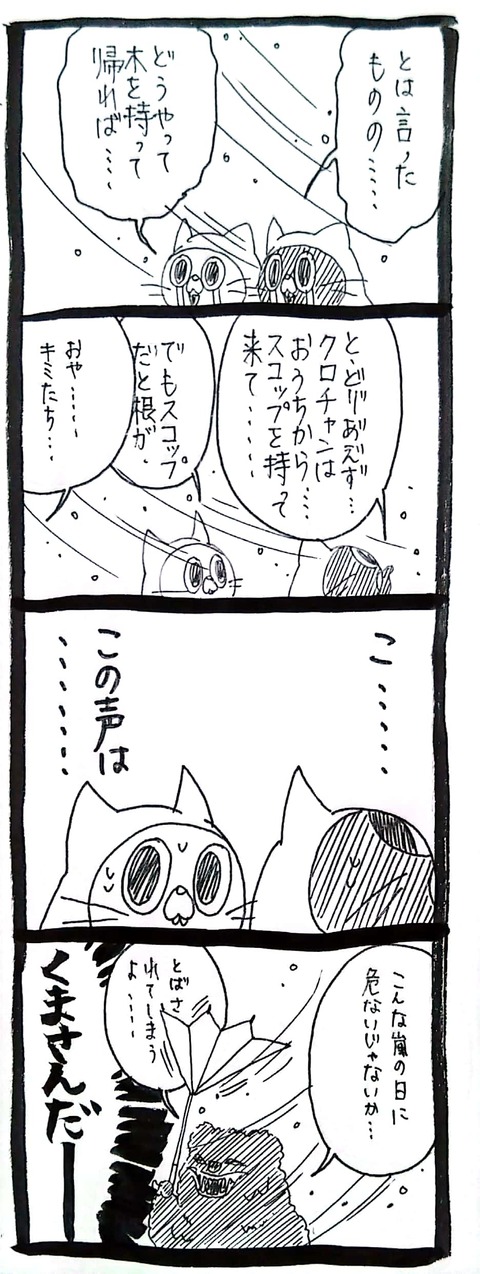 とは言った
ものの・・・・・
どうやって
木を持って
帰れば・・・・
とっどりあえず・・・
クロチャンは
おうちから・・・・
スコップを持って
来て・・・・・・
でもスコップ
だと根が、
おや・・・・・
キミたち・・・
こ・・・・・
この声は
・・・・・・・
こんな嵐の日に
危ないじゃないか・・・
とばさ
れてしまう
よ・・・・
くまさんだー